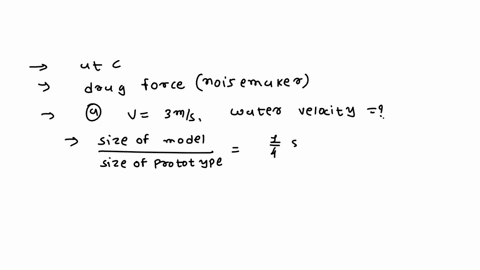 → ut C
→ drug force (noisemaker)
→ ⓐ V = 3 m/s, water velocity = ?
→ size of model / size of prototype = 1/4 s